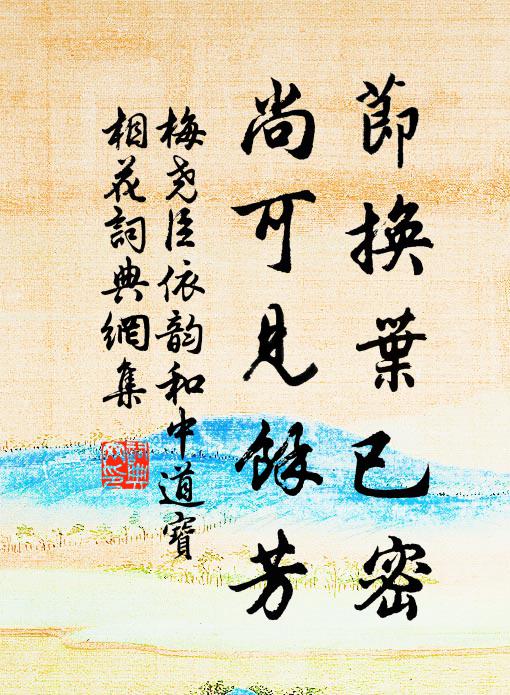 節換葉已密
尚可見餘芳
梅堯臣依韵和中道寶
相花詞典網集